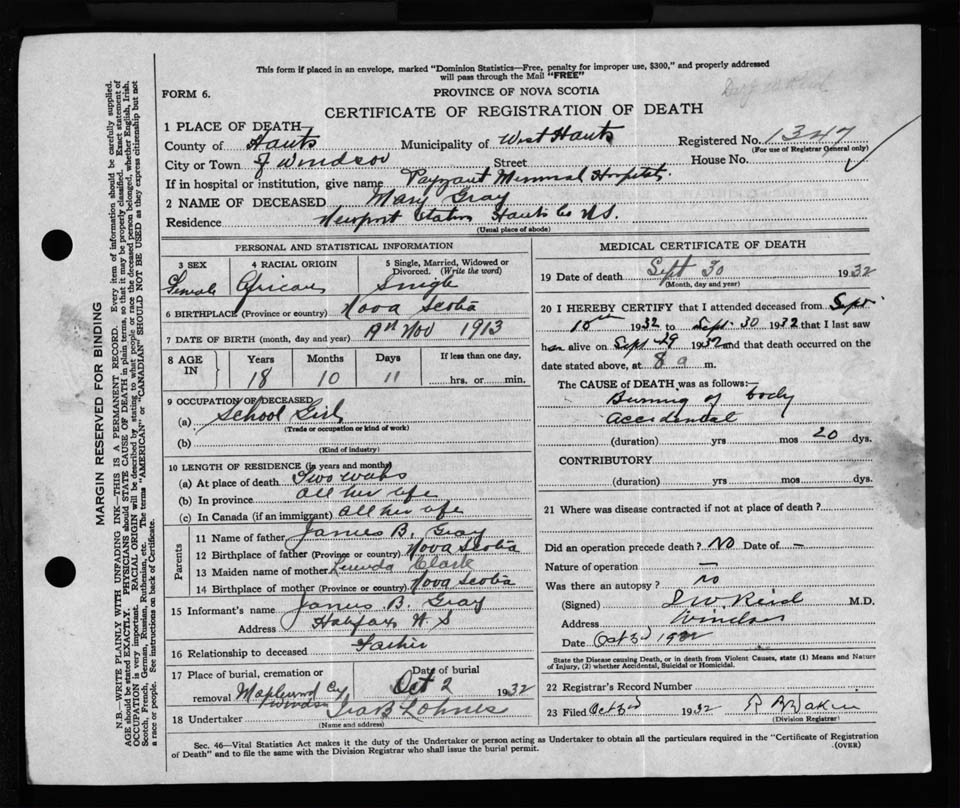 This form if placed in an envelope, marked "Dominion Statistics—Free, penalty for improper use, $300," and properly addressed
will pass through the Mail "FREE"
FORM 6.
PROVINCE OF NOVA SCOTIA
CERTIFICATE OF REGISTRATION OF DEATH
1 PLACE OF DEATH
County of Hants Municipality of West Hants Registered No. 1347
(For use of Registrar General only)
City or Town of Windsor Street House No.
If in hospital or institution, give name Payzant Memorial Hospital.
2 NAME OF DECEASED Mary Gray
Residence Newport Station Hants Co N.S.
(Usual place of abode)
PERSONAL AND STATISTICAL INFORMATION
3 SEX 4 RACIAL ORIGIN 5 Single, Married, Widowed or
Divorced. (Write the word)
Female African Single
6 BIRTHPLACE (Province or country) Nova Scotia
7 DATE OF BIRTH (month, day and year) 19th Nov 1913
8 AGE IN Years Months Days If less than one day,
18 10 11 hrs. or min.
9 OCCUPATION OF DECEASED
(a) School Girl
(Trade or occupation or kind of work)
(b)
(Kind of industry)
10 LENGTH OF RESIDENCE (in years and months)
(a) At place of death Two weeks
(b) In province all her life
(c) In Canada (if an immigrant) all her life
Parents
11 Name of father James B. Gray
12 Birthplace of father (Province or country) Nova Scotia
13 Maiden name of mother Clark
14 Birthplace of mother (Province or country) Nova Scotia
15 Informant's name James B. Gray
Address Halifax N S
16 Relationship to deceased Father
17 Place of burial, cremation or Date of burial
removal Windsor Oct 2 1932
18 Undertaker
(Name and address)
MEDICAL CERTIFICATE OF DEATH
19 Date of death Sept 30 1932
(Month, day and year)
20 I HEREBY CERTIFY that I attended deceased from Sept.
10th 1932 to Sept. 30 1932 that I last saw
her alive on Sept 29 1932 and that death occurred on the
date stated above, at 8 a m.
The CAUSE of DEATH was as follows:—
Burning of body
accidental
(duration) yrs mos 20 dys.
CONTRIBUTORY
(duration) yrs. mos. dys.
21 Where was disease contracted if not at place of death?
Did an operation precede death? No Date of –
Nature of operation –
Was there an autopsy? no
(Signed) Reid M.D.
Address Windsor
Date Oct 3rd 1932
State the Disease causing Death, or in death from Violent Causes, state (1) Means and Nature
of Injury, (2) whether Accidental, Suicidal or Homicidal.
22 Registrar's Record Number
23 Filed Oct 3rd 1932
(Division Registrar)
Sec. 46—Vital Statistics Act makes it the duty of the Undertaker or person acting as Undertaker to obtain all the particulars required in the "Certificate of Registration
of Death" and to file the same with the Division Registrar who shall issue the burial permit. (OVER)
MARGIN RESERVED FOR BINDING
N.B.—WRITE PLAINLY WITH UNFADING INK—THIS IS A PERMANENT RECORD. Every item of information should be carefully supplied.
AGE should be stated EXACTLY. PHYSICIANS should STATE CAUSE OF DEATH in plain terms, so that it may be properly classified. Exact statement of
OCCUPATION is very important. RACIAL ORIGIN will be described by stating to what people or race the deceased person belonged, whether English, Irish,
Scotch, French, German, Russian, Ruthenian, etc. The terms "AMERICAN" or "CANADIAN" SHOULD NOT BE USED as they express citizenship but not
a race or people. See instructions on back of Certificate.